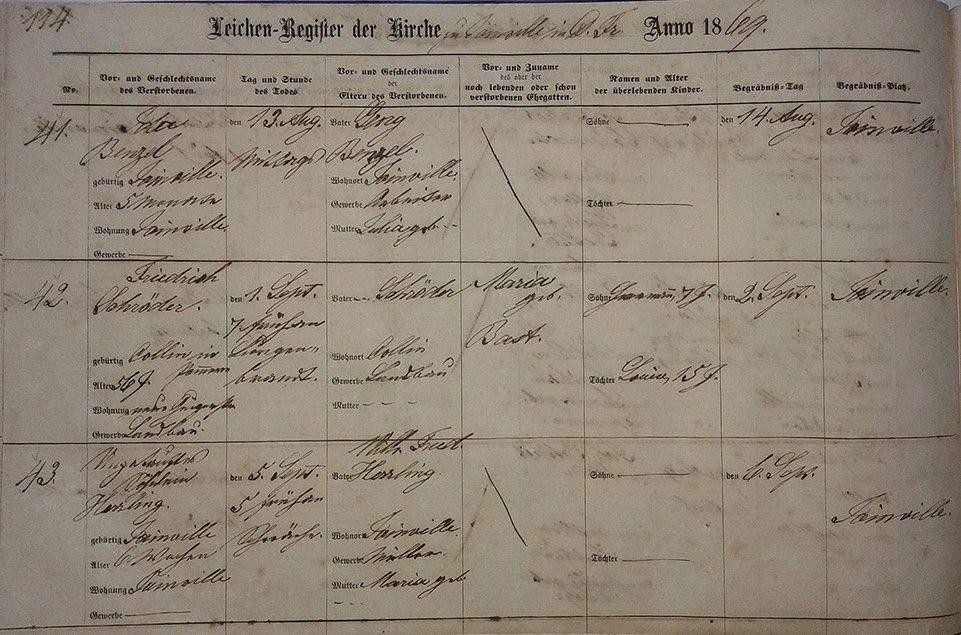 114
Leichen-Register der Kirche zu Joinville in D. Fr. Anno 1869.
No.
Vor- und Geschlechtsname
des Verstorbenen.
Tag und Stunde
des Todes
Vor- und Geschlechtsname
der
Eltern des Verstorbenen.
Vor- und Zuname
des oder der
noch lebenden oder schon
verstorbenen Ehegatten.
Namen und Alter
der überlebenden Kinder.
Begräbniß-Tag
Begräbniß-Platz.
41.
Benzel
gebürtig Joinville.
Alter 5 Monate
Wohnung Joinville.
Gewerbe
den 13. Aug.
Mittags
Vater Georg
Benzel.
Wohnort Joinville.
Gewerbe Arbeiter
Mutter Julia geb.
Söhne
Töchter
den 14. Aug.
Joinville.
42.
Friedrich
Schröder.
gebürtig Collin in
Pommern
Alter 56 J.
Wohnung neue
Gewerbe Landbau.
den 1. Sept.
7 Früh
Lungen-
brandt.
Vater Schröder
Wohnort Collin
Gewerbe Landbau
Mutter
Maria
geb.
Bast.
Söhne Hermann, 7 J.
Töchter Louise, 15 J.
den 2. Sept.
Joinville.
43.
Ungetauftes
Söhnlein
Herling.
gebürtig Joinville
Alter 6 Wochen
Wohnung Joinville
Gewerbe
den 5. Sept.
5 Früh
Schwäche.
Wilh. Fried.
Vater Herling.
Wohnort Joinville.
Gewerbe Müller.
Mutter Maria geb
Söhne
Töchter
den 6. Sept.
Joinville.